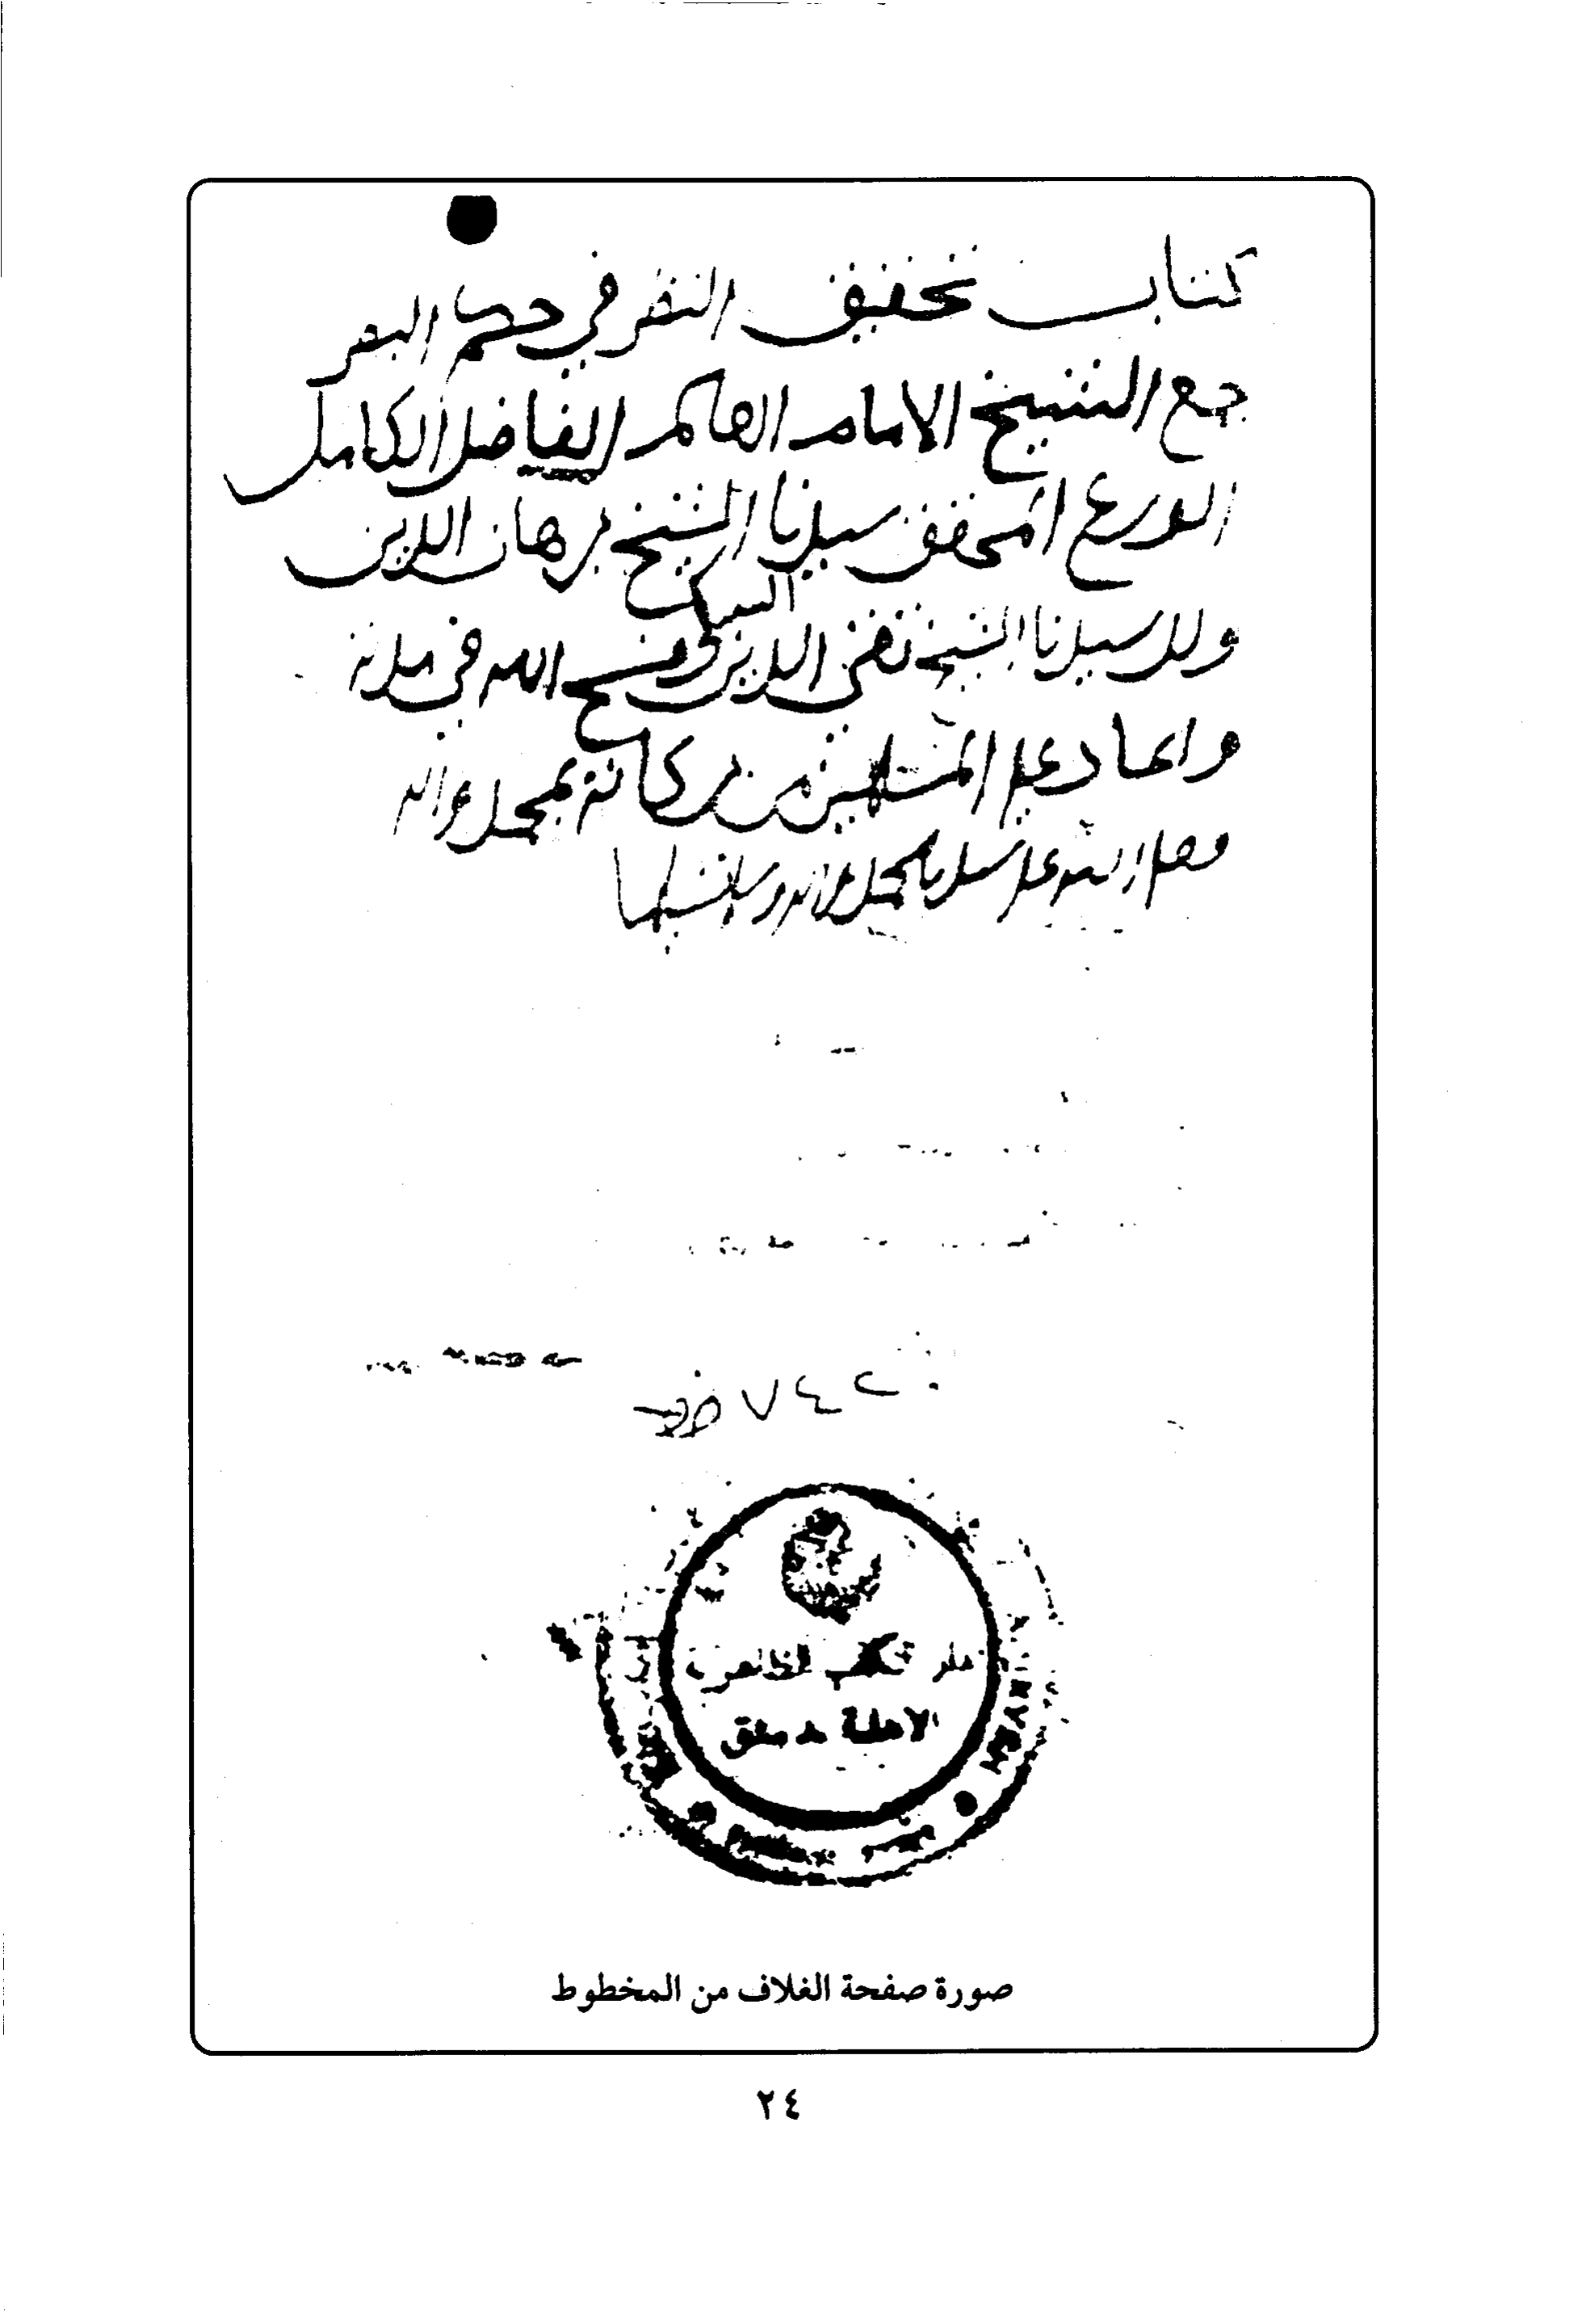 كتاب تحقيق النظر في حكم البصر
جمع الشيخ الامام العالم الفاضل الكامل
الورع المحقق سيدنا الشيخ برهان الدين
السبكي
ولد سيدنا الشيخ تقي الدين فسح الله في مدته
واعاد على المسلمين من بركاته بمحمد واله
وصلى الله على سيدنا محمد واله وسلم تسليما
دار الكتب الظاهرية
الاهلية دمشق
صورة صفحة الغلاف من المخطوط
٢٤